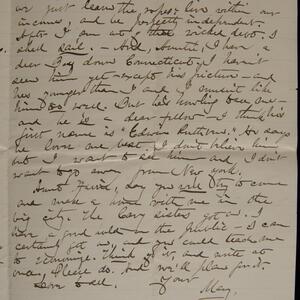 we just learn the ropes - live within our
incomes, and be perfectly independent.
After I am out that wicked debt, I
shall sail. - And, Auntie, I have a
dear Boy down Connecticut, I haven't
seen him yet - except his picture - and
he's younger than I and I mustn't like
him so well. But he's nothing but one -
and he is a dear fellow - I think his
first name is "Edwin He says
he loves me best. I don't believe him
but I want to see him and I don't
want to go away from New York.
Aunt do you try to come
and make a with me in the
big city. The Cary sisters got on. I
have a good hold on the public - I can
certainly get on, and you could teach me
to economize. Think of it, and write at
once, Please do. And we'll plan for it.
Love to all. Your
May.